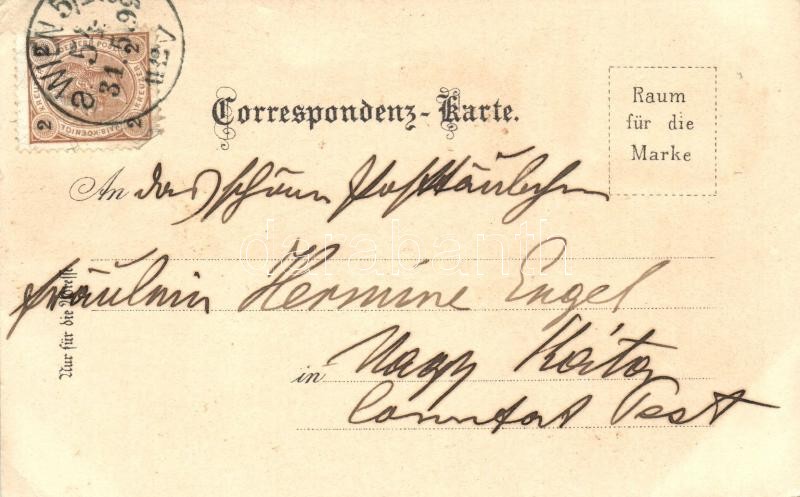 WIEN 5/
31.5.99
2 KREUZER
2
Correspondenz-Karte.
Raum
für die
Marke
An das schöne Postfräulein
darabanth
Fräulein Hermine Engel
Nur für die Adresse
in Nagy Káta
Comitat Pest